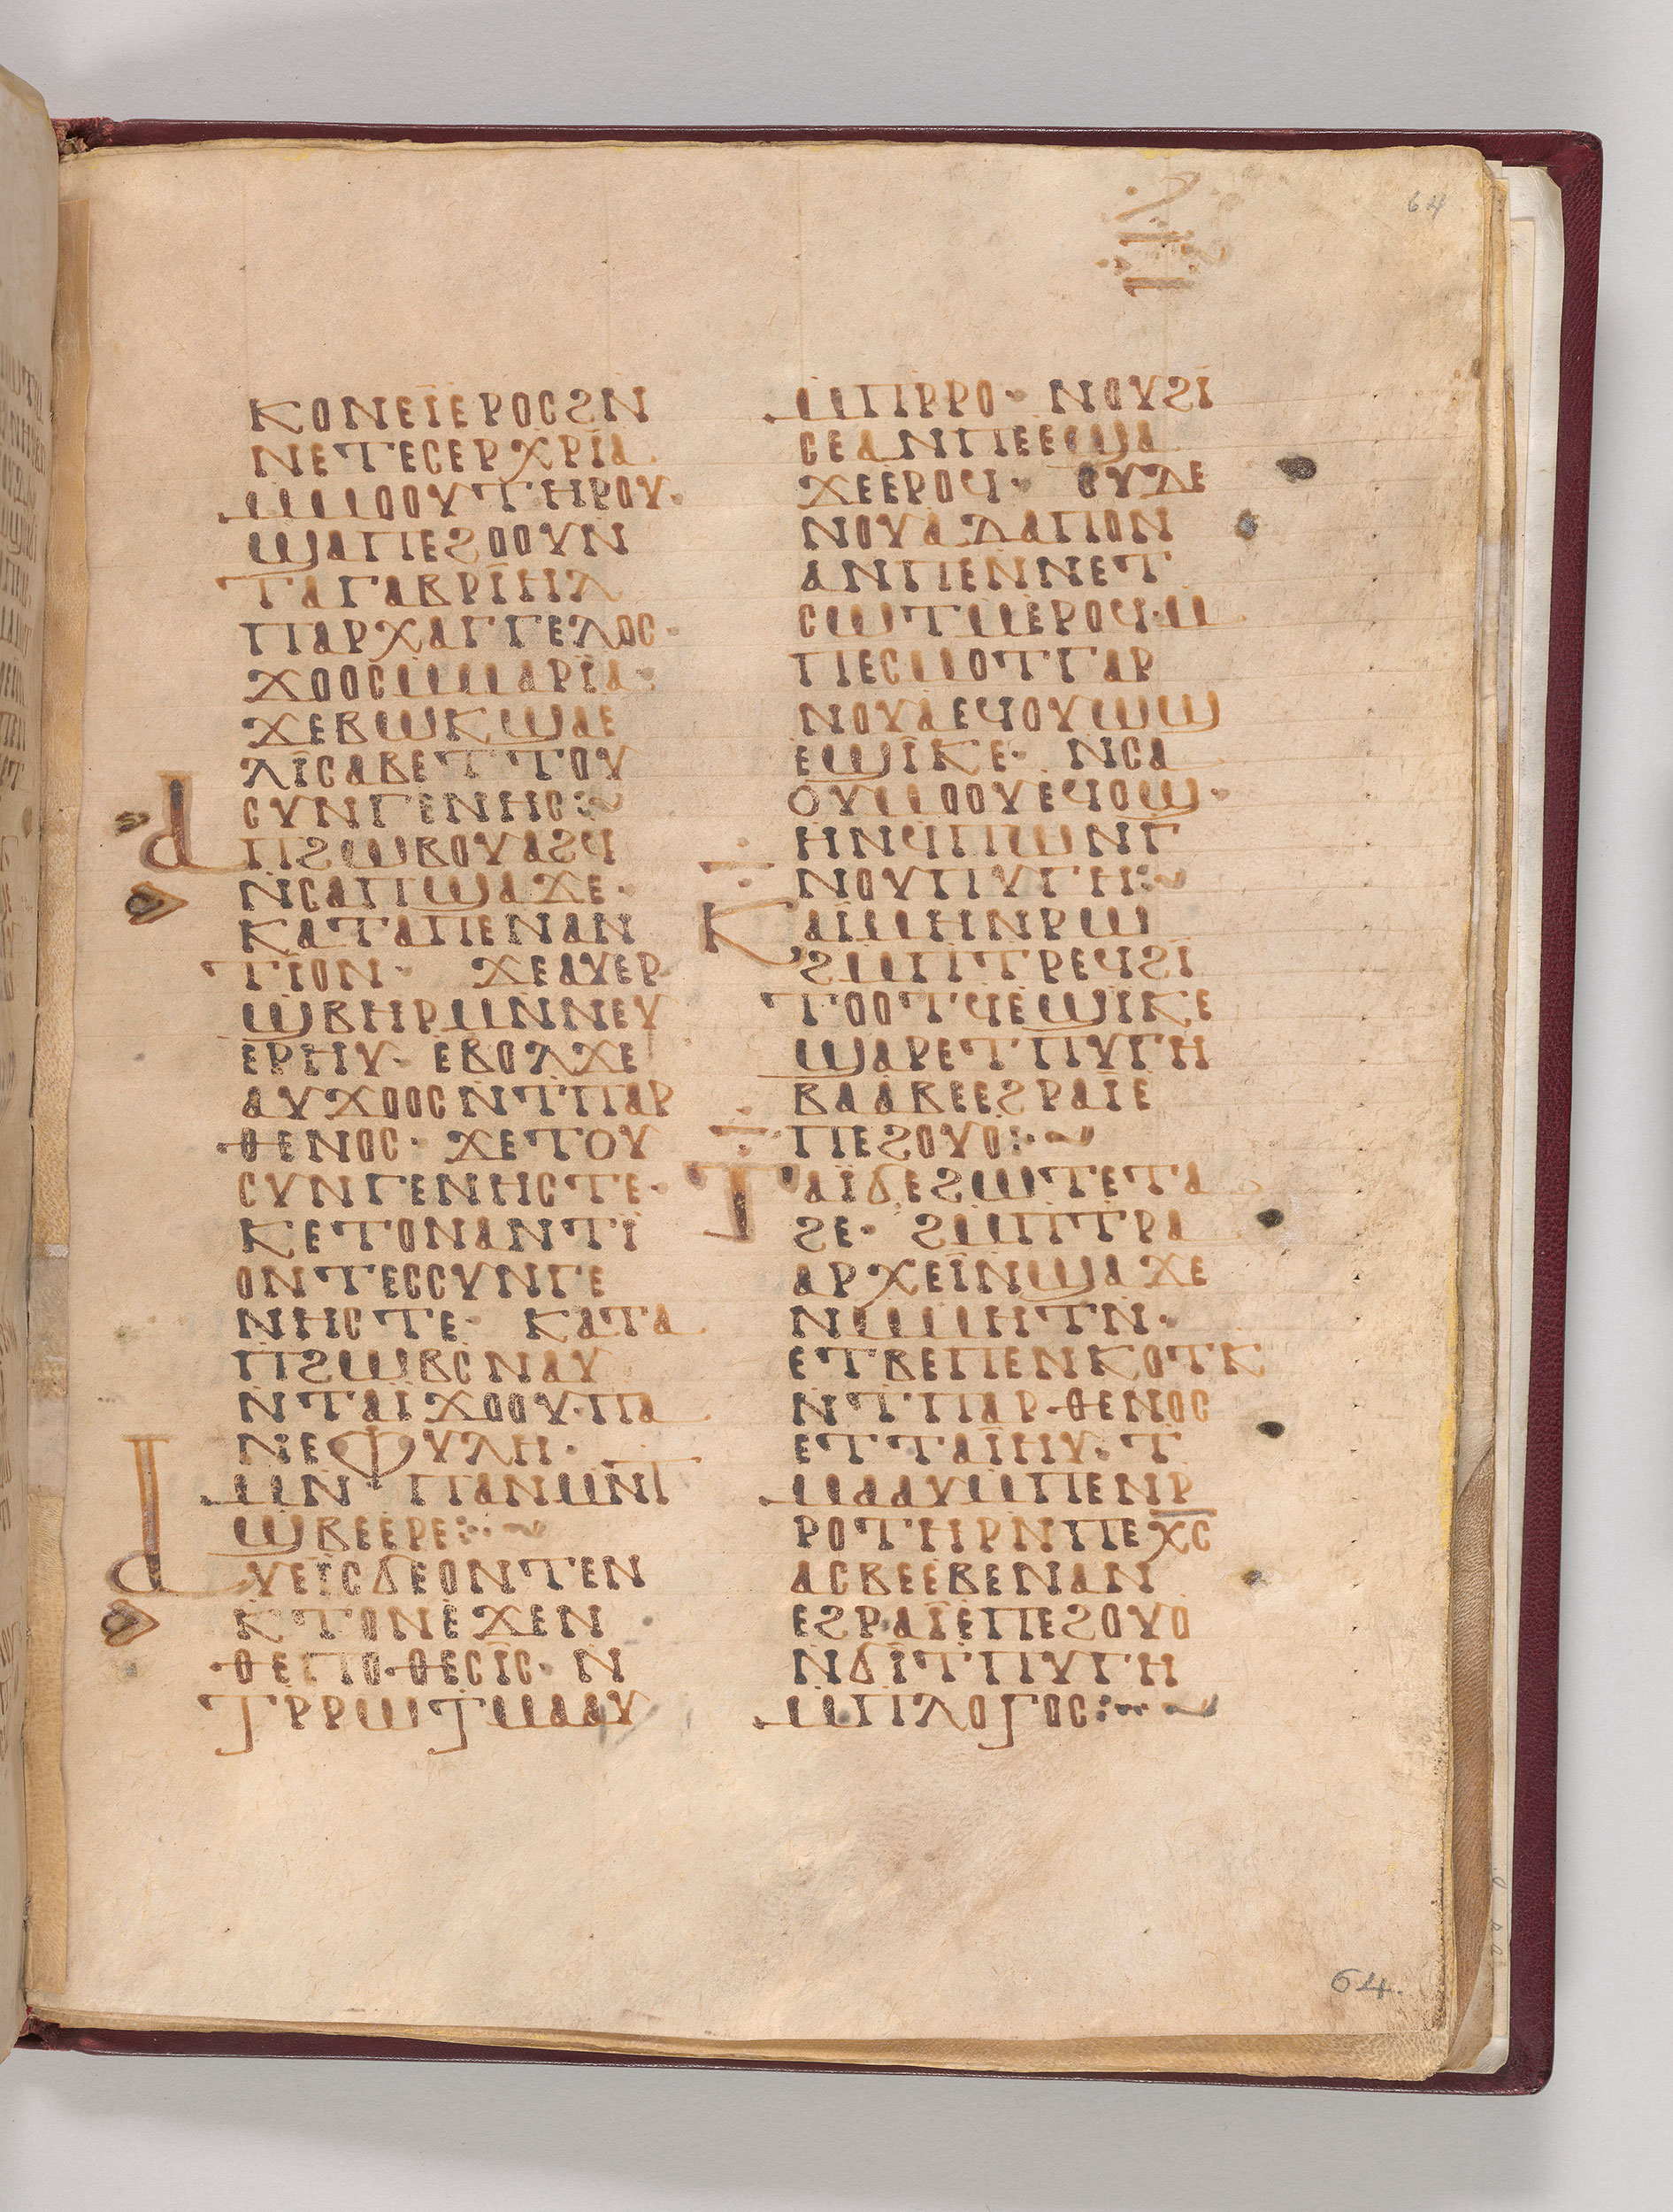 ⲕⲟⲛⲉⲓ̈ⲉⲣⲟⲥϩⲛ
ⲛⲉⲧⲉⲥⲉⲣⲭⲣⲓ̈ⲁ
ⲙⲙⲟⲟⲩⲧⲏⲣⲟⲩ·
ϣⲁⲡⲉϩⲟⲟⲩⲛ
ⲧⲁⲅⲁⲃⲣⲓ̈ⲏⲗ
ⲡⲁⲣⲭⲁⲅⲅⲉⲗⲟⲥ·
ϫⲟⲟⲥⲙⲙⲁⲣⲓ̈ⲁ·
ϫⲉⲃⲱⲕϣⲁⲉ
ⲗⲓ̈ⲥⲁⲃⲉⲧⲧⲟⲩ
ⲥⲩⲛⲅⲉⲛⲏⲥ:~
ⲁⲡϩⲱⲃⲟⲩⲁϩϥ
ⲛⲥⲁⲡϣⲁϫⲉ·
ⲕⲁⲧⲁⲡⲉⲛⲁⲛ
ⲧⲓ̈ⲟⲛ· ϫⲉⲁⲩⲉⲣ
ϣⲃⲏⲣⲙⲛⲛⲉⲩ
ⲉⲣⲏⲩ· ⲉⲃⲟⲗϫⲉ
ⲁⲩϫⲟⲟⲥⲛⲧⲡⲁⲣ
ⲑⲉⲛⲟⲥ· ϫⲉⲧⲟⲩ
ⲥⲩⲛⲅⲉⲛⲏⲥⲧⲉ·
ⲕⲉⲧⲟⲛⲁⲛⲧⲓ̈
ⲟⲛⲧⲉⲥⲥⲩⲛⲅⲉ
ⲛⲏⲥⲧⲉ· ⲕⲁⲧⲁ
ⲡϩⲱⲃⲥⲛⲁⲩ
ⲛⲧⲁⲓ̈ϫⲟⲟⲩ·ⲡⲁ
ⲛⲉⲫⲩⲗⲏ·
ⲙⲛ ⲡⲁⲛⲙⲛⲧ
ϣⲃⲉⲉⲣⲉ:·~
ⲁⲩⲉⲓ̈ⲥϭⲉⲟⲛⲧⲉⲛ
ⲕⲧⲟⲛⲉϫⲉⲛ
ⲑⲉⲡⲟⲑⲉⲥⲓ̈ⲥ· ⲛ
ⲧⲣⲣⲱⲧⲙⲁⲁⲩ
ⲙⲡⲣⲣⲟ· ⲛⲟⲩϩⲓ̈
ⲥⲉⲁⲛⲡⲉⲉϣⲁ
ϫⲉⲉⲣⲟϥ· ⲟⲩⲇⲉ
ⲛⲟⲩⲁⲗⲁⲡⲟⲛ
ⲁⲛⲡⲉⲛⲛⲉⲧ
ⲥⲱⲧⲙⲉⲣⲟϥ·ⲙ
ⲡⲉⲥⲙⲟⲧⲅⲁⲣ
ⲛⲟⲩⲁⲉϥⲟⲩⲱϣ
ⲉϣⲓ̈ⲕⲉ· ⲛⲥⲁ
ⲟⲩⲙⲟⲟⲩⲉϥⲟϣ·
ⲏⲛϥⲡⲱⲛⲅ
ⲛⲟⲩⲡⲩⲅⲏ:~
ⲕⲁⲓ̈ⲙⲏⲛⲣⲱ
ϩⲙⲡⲧⲣⲉϥϩⲓ̈
ⲧⲟⲟⲧϥⲉϣⲓⲕⲉ
ϣⲁⲣⲉⲧⲡⲩⲅⲏ
ⲃⲁⲁⲃⲉⲉϩⲣⲁⲓⲉ
ⲡⲉϩⲟⲩⲟ:·~
ⲧⲁⲓ̈ϭⲉϩⲱⲧⲉⲧⲁ
ϩⲉ· ϩⲙⲡⲧⲣⲁ
ⲁⲣⲭⲉⲓ̈ⲛϣⲁϫⲉ
ⲛⲙⲙⲏⲧⲛ·
ⲉⲧⲃⲉⲡⲉⲛⲕⲟⲧⲕ
ⲛⲧⲡⲁⲣⲑⲉⲛⲟⲥ
ⲉⲧⲧⲁⲓ̈ⲏⲩ· ⲧ
ⲙⲁⲁⲩⲙⲡⲉⲛⲣ
ⲣⲟⲧⲏⲣⲛⲡⲉⲭ̅ⲥ̅
ⲁⲥⲃⲉⲉⲃⲉⲛⲁⲛ
ⲉϩⲣⲁⲓ̈ⲉⲡⲉϩⲟⲩⲟ
ⲛϭⲓ̈ⲧⲡⲩⲅⲏ
ⲙⲡⲗⲟⲅⲟⲥ:··~
64
64.